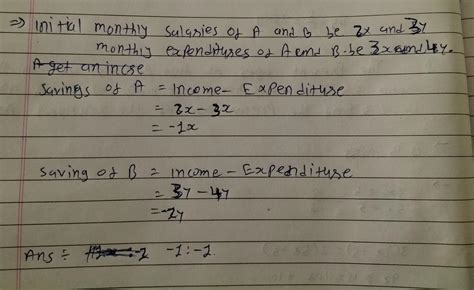 ⇒ Initial monthly salaries of A and B be 2x and 3y
monthly expenditures of A and B be 3x and 4y.
A get an incre
Savings of A = Income - Expenditure
= 2x - 3x
= -1x
Saving of B = Income - Expenditure
= 3y - 4y
= -2y
Ans ÷ -2 -1:-2.